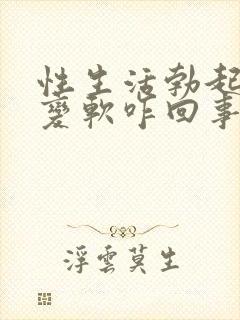 性生活勃起
变軟咋回事
浮雲莫生